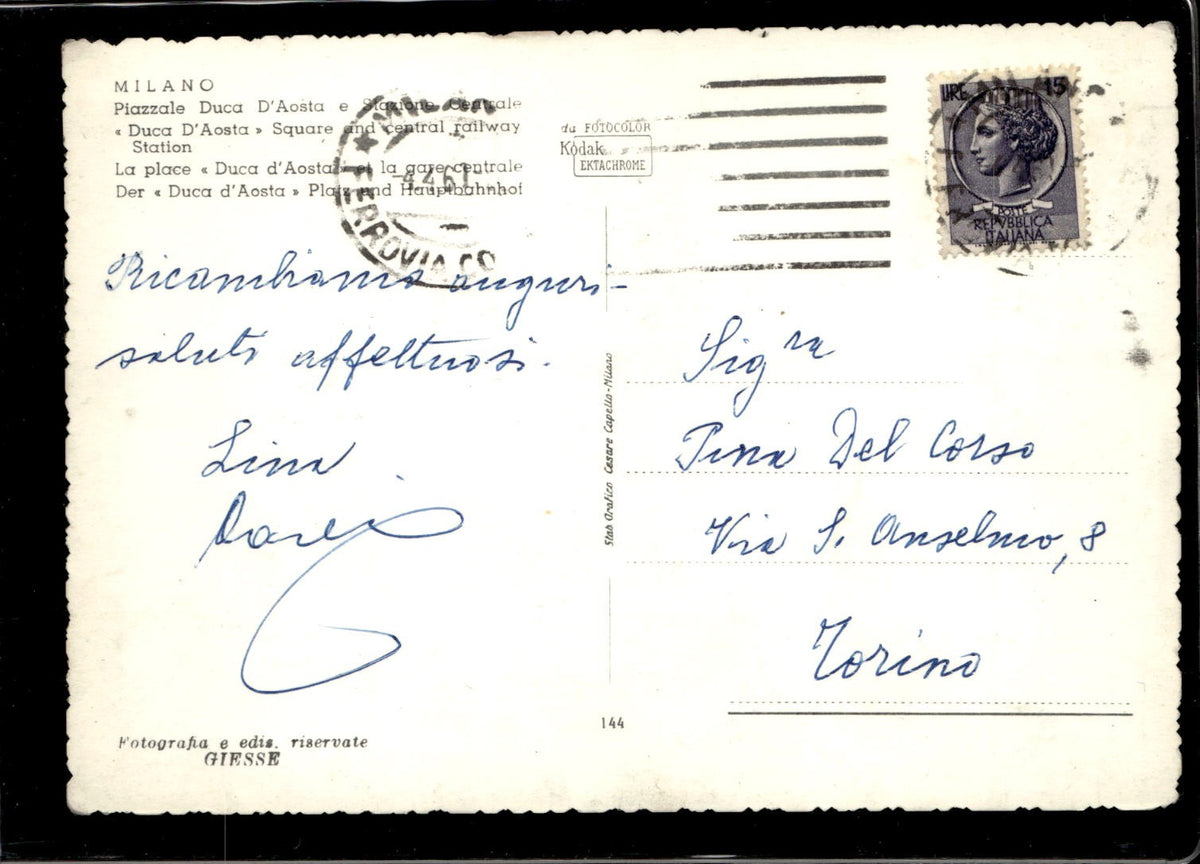 MILANO
Piazzale Duca D'Aosta e Stazione Centrale
« Duca D'Aosta » Square and central railway
Station
La place « Duca d'Aosta » et la gare centrale
Der « Duca d'Aosta » Platz und Hauptbahnhof
MILANO
-4.4.61
FERROVIA
da FOTOCOLOR
Kodak
EKTACHROME
LIRE 15
POSTE
REPVBBLICA
ITALIANA
Ricambiamo auguri-
saluti affettuosi.
Lina
Stab Grafico Cesare Capello-Milano
Sig ra
Pina Del Corso
Via S. Anselmo, 8
Torino
144
Fotografia e edis. riservate
GIESSE